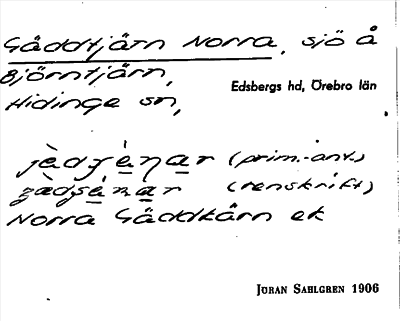 Gäddtjärn Norra, sjö å
Björntjärn,
Hidinge sn,
Edsbergs hd, Örebro län
(prim.-ant.)
(renskrift)
Norra Gäddkärn ek
JÖRAN SAHLGREN 1906